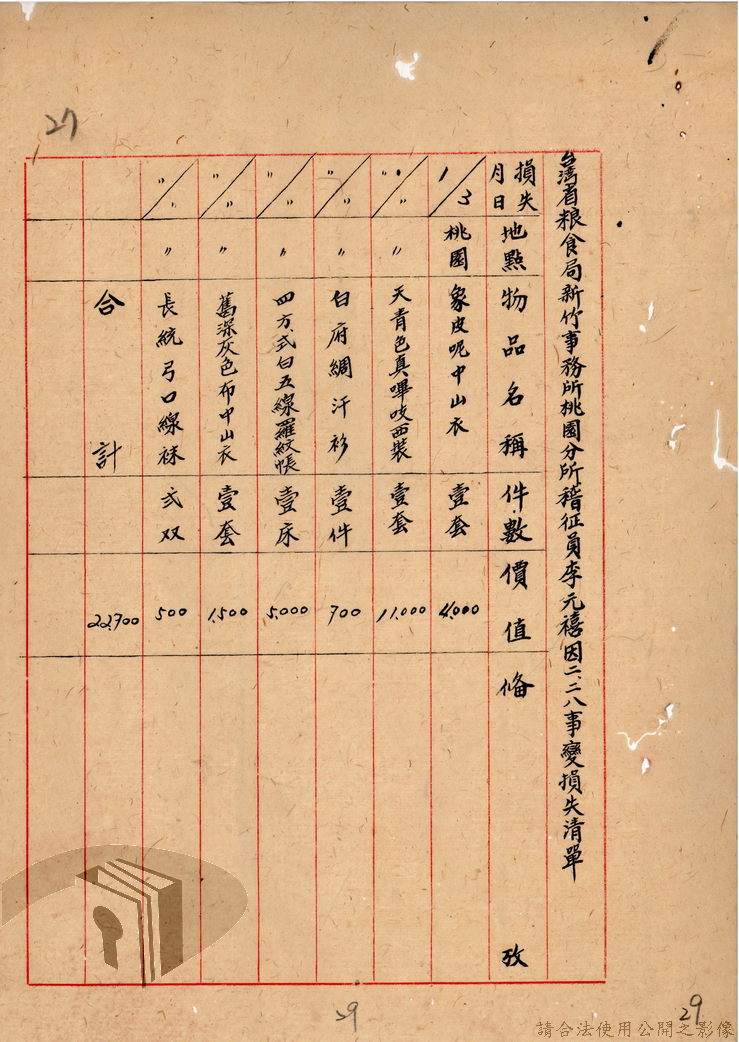 27
台湾省粮食局新竹事務所桃園分所稽征員李元禧因二.二八事變損失清單
損失月日 地點 物品名稱 件數 價值 俻攷
1/3 桃園 象皮呢中山衣 壹套 4,000
〃/〃 〃 天青色真嗶吱西裝 壹套 11,000
〃/〃 〃 白府綢汗衫 壹件 700
〃/〃 〃 四方式白五線羅紋帳 壹床 5,000
〃/〃 〃 舊深灰色布中山衣 壹套 1,500
〃/〃 〃 長統弓口線襪 弍双 500
合計 22,700
29
29
請合法使用公開之影像